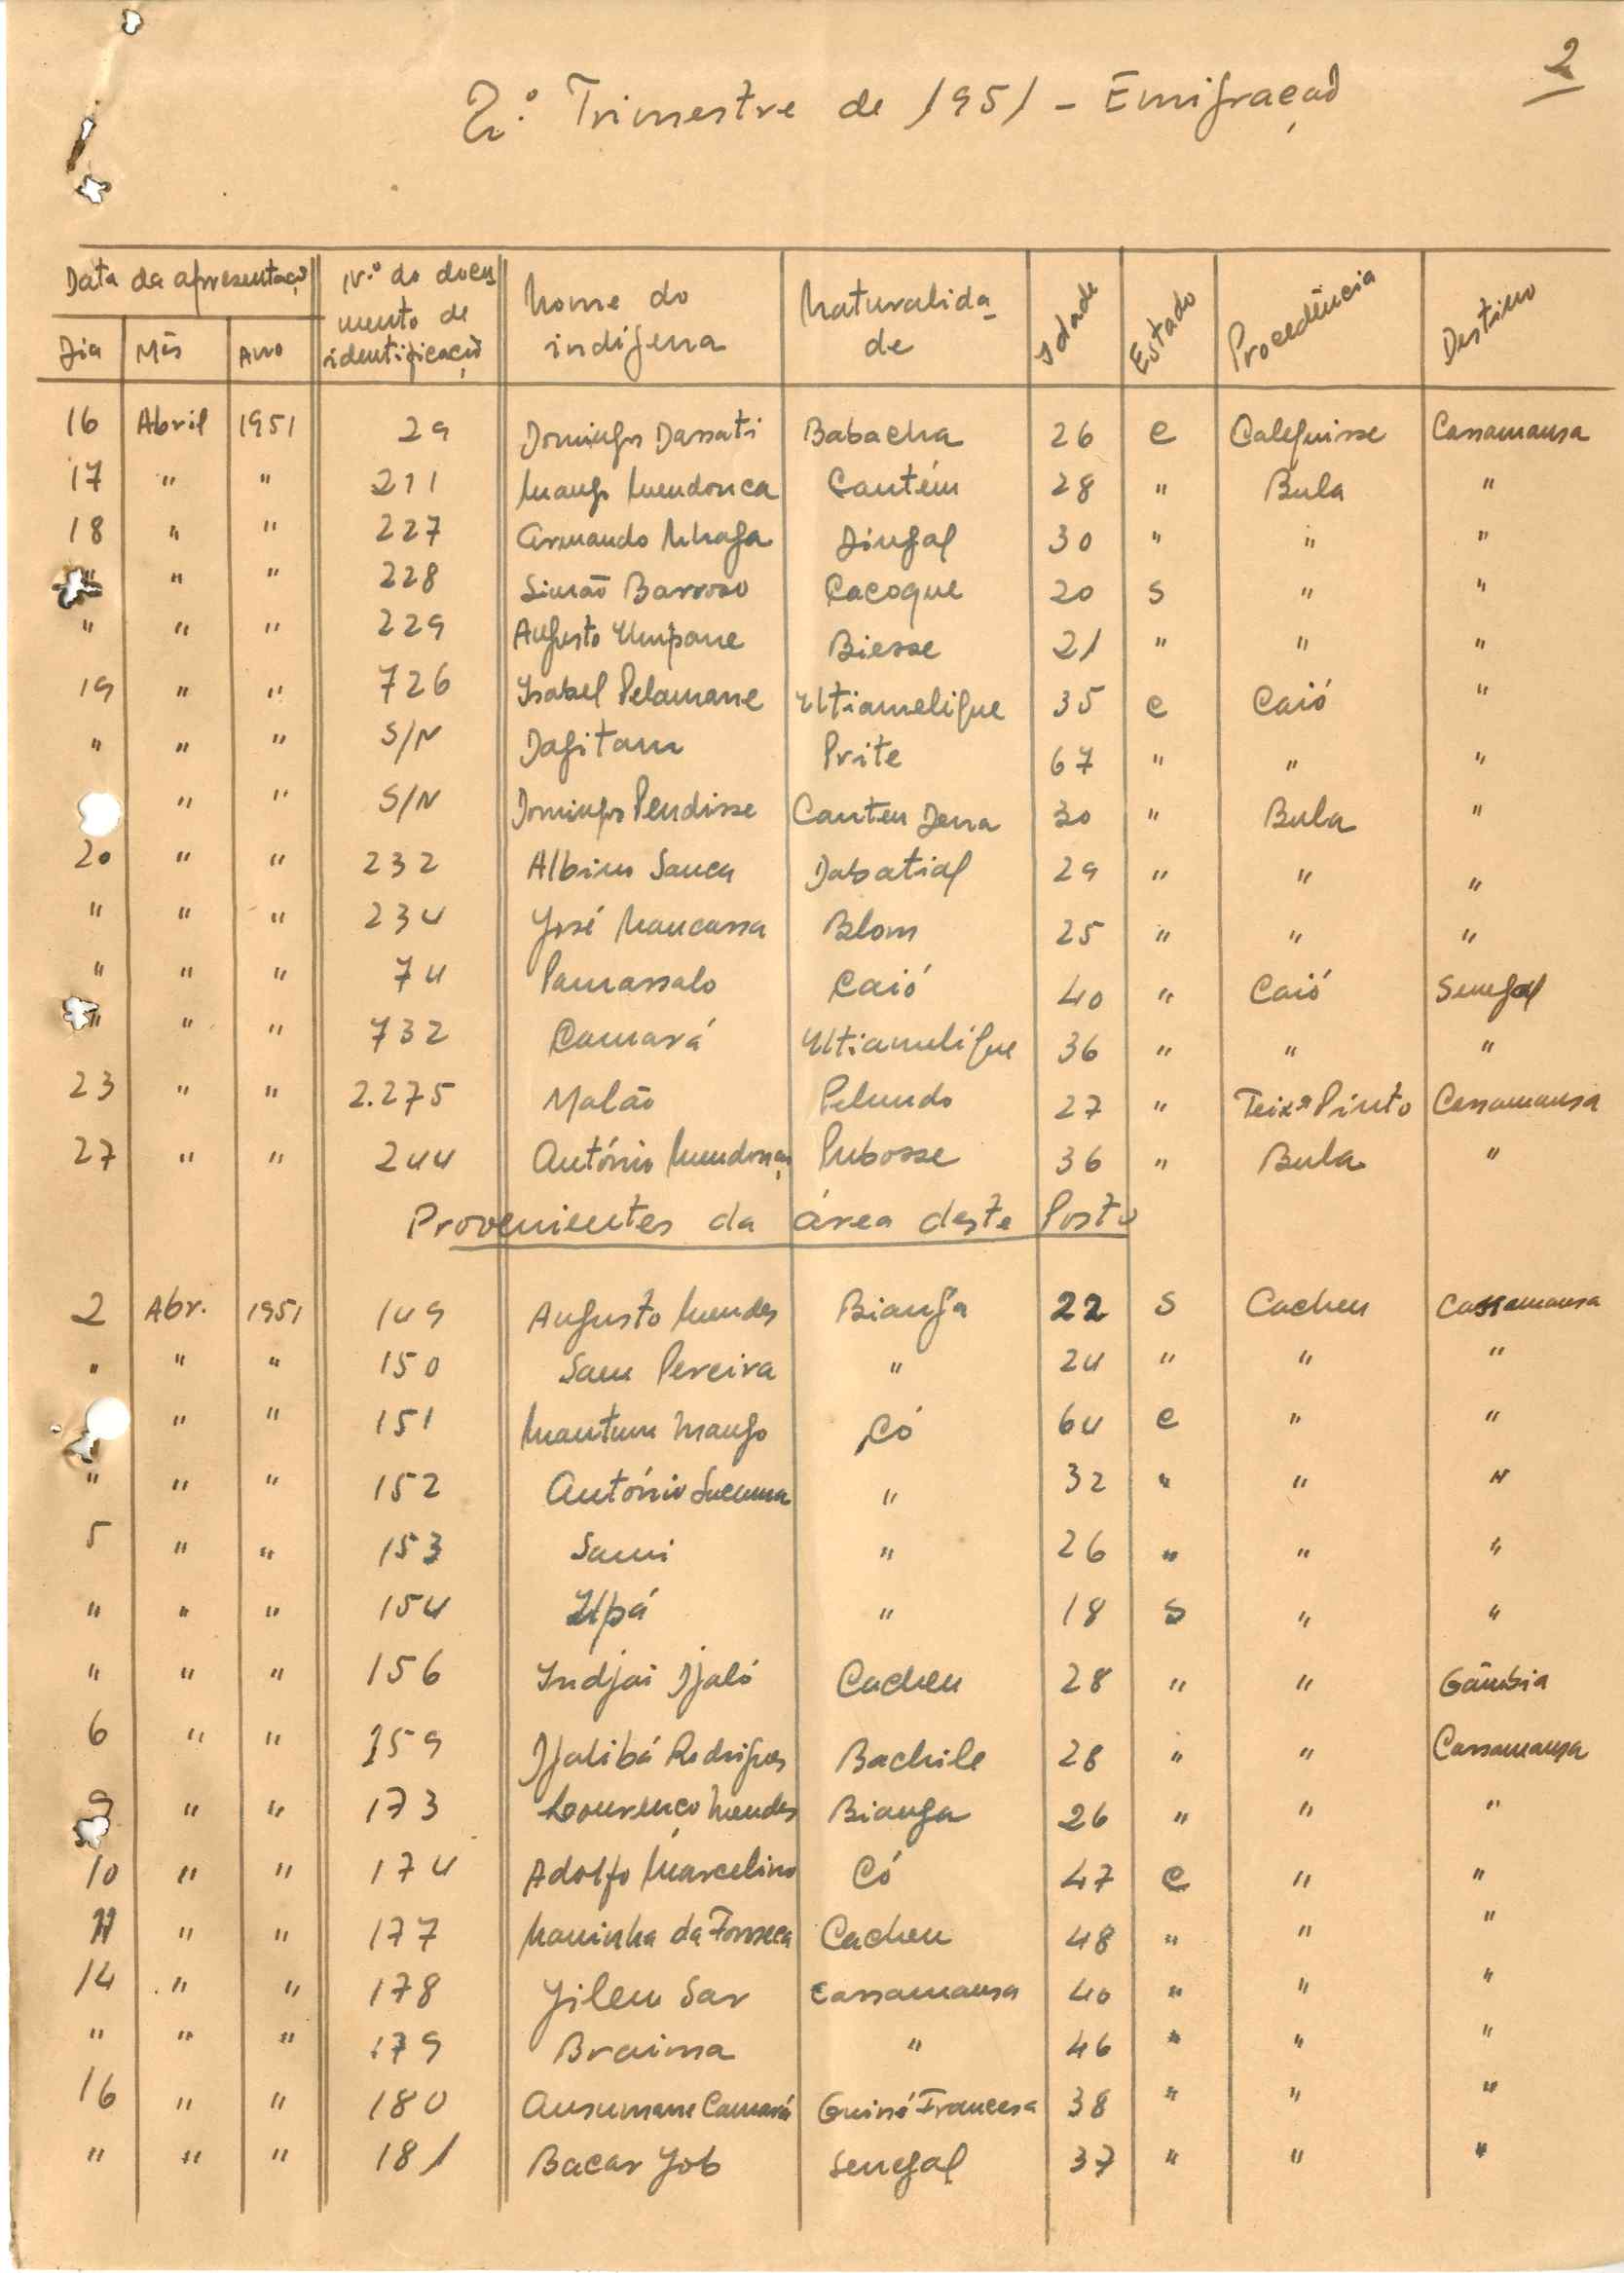 2
2.º Trimestre de 1951 - Emigração
Data da apresentação
Dia Mês Ano Nº do docu mento de identificação Nome do indígena Naturalida-de Idade Estado Procedência Destino
16 Abril 1951 29 Domingos Dassati Babacha 26 c Calequisse Cassamansa
17 " " 211 Mango Mendonca Cantém 28 " Bula "
18 " " 227 Armando Nhaga Dingal 30 " " "
" " " 228 Simão Barroso Cacoque 20 s " "
" " " 229 Augusto Umpane Biesse 21 " " "
19 " " 726 Isabel Pelamane Utiamelique 35 c Caió "
" " " S/N Dagitam Prite 67 " " "
" " S/N Domingos Pendisse Canten Dena 30 " Bula "
20 " " 232 Albino Sanca Dabatial 29 " " "
" " " 234 José Mancassa Blom 25 " " "
" " " 74 Pamassalo Caió 40 " Caió Senegal
" " " 732 Camará Utiamelique 36 " " "
23 " " 2.275 Malão Pelundo 27 " Teixª Pinto Cassamansa
27 " " 244 António Mendonça Pubosse 36 " Bula "
Provenientes da área deste Posto
2 Abr. 1951 149 Augusto Mendes Bianga 22 s Cacheu Cassamansa
" " " 150 Sam Pereira " 24 " " "
" " 151 Mantum Mango Có 64 c " "
" " " 152 António Sucuma " 32 " " "
5 " " 153 Sami " 26 " " "
" " " 154 Upá " 18 s " "
" " " 156 Indjai Djaló Cacheu 28 " " Gâmbia
6 " " 159 Djalibá Rodrigues Bachile 28 " " Cassamansa
9 " " 173 Lourenço Mendes Bianga 26 " " "
10 " " 174 Adolfo Marcelino Có 47 c " "
11 " " 177 Maninha da Fonseca Cacheu 48 " " "
14 " " 178 Jilem Sar Cassamansa 40 " " "
" " " 179 Braima " 46 " " "
16 " " 180 Ansumane Camará Guiné Francesa 38 " " "
" " " 181 Bacar Job Senegal 37 " " "